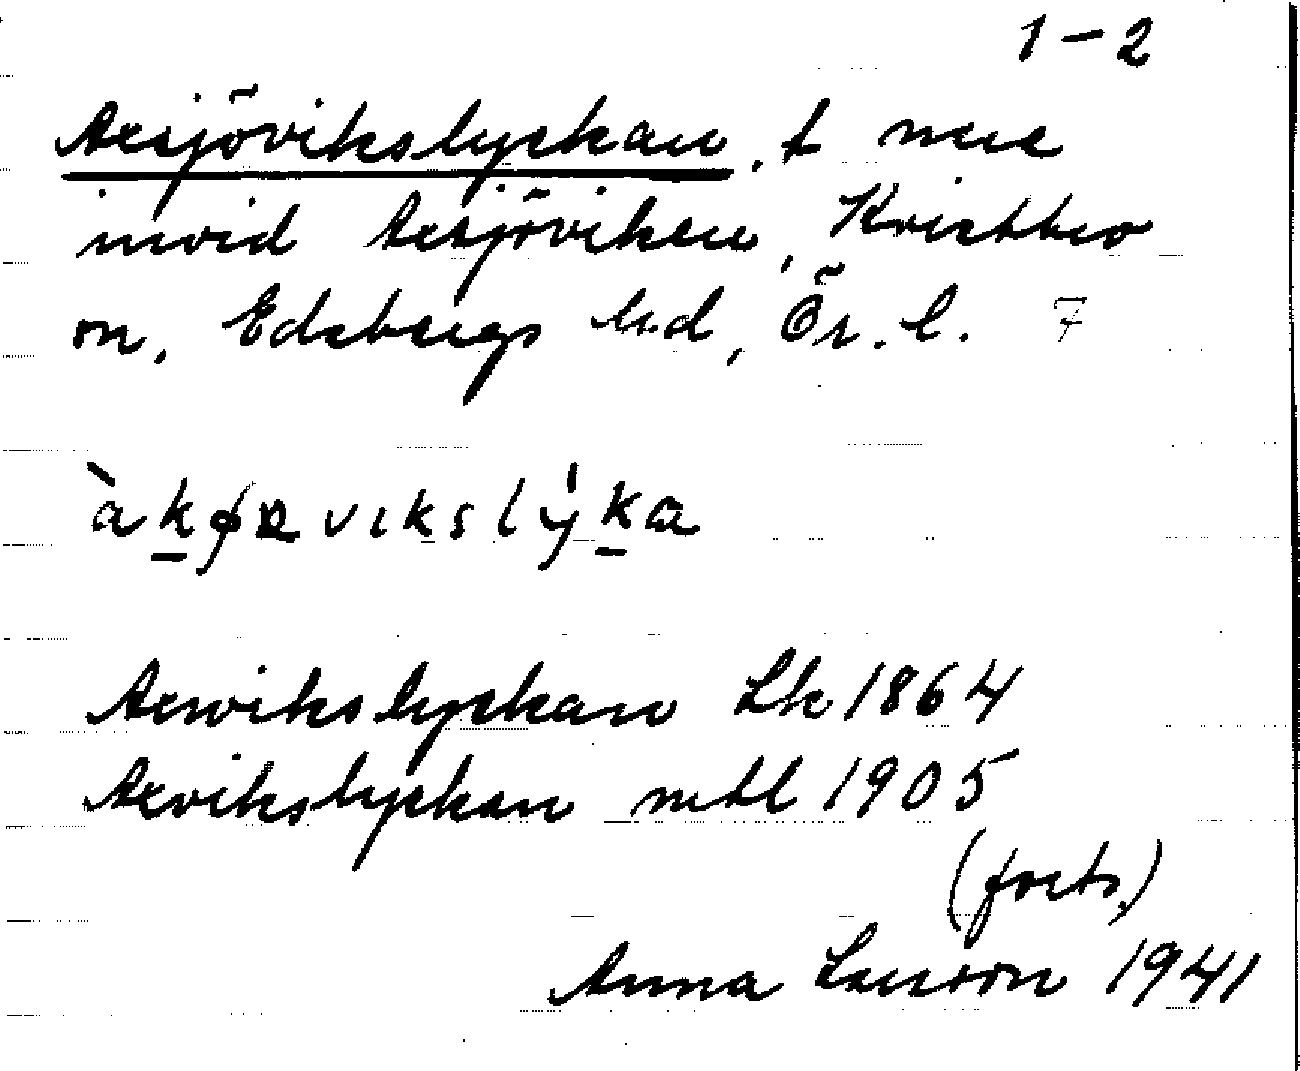 1-2
Acsjövikslyckan, t nuc
invid Acsjöviken, Kvistbro
sn, Edsbergs hd, Ör. l. 7
àkørvikslýka
Acsvikslyckan Lk 1864
Acvikslyckan mtl 1905
(forts.)
Anna Larsson 1941